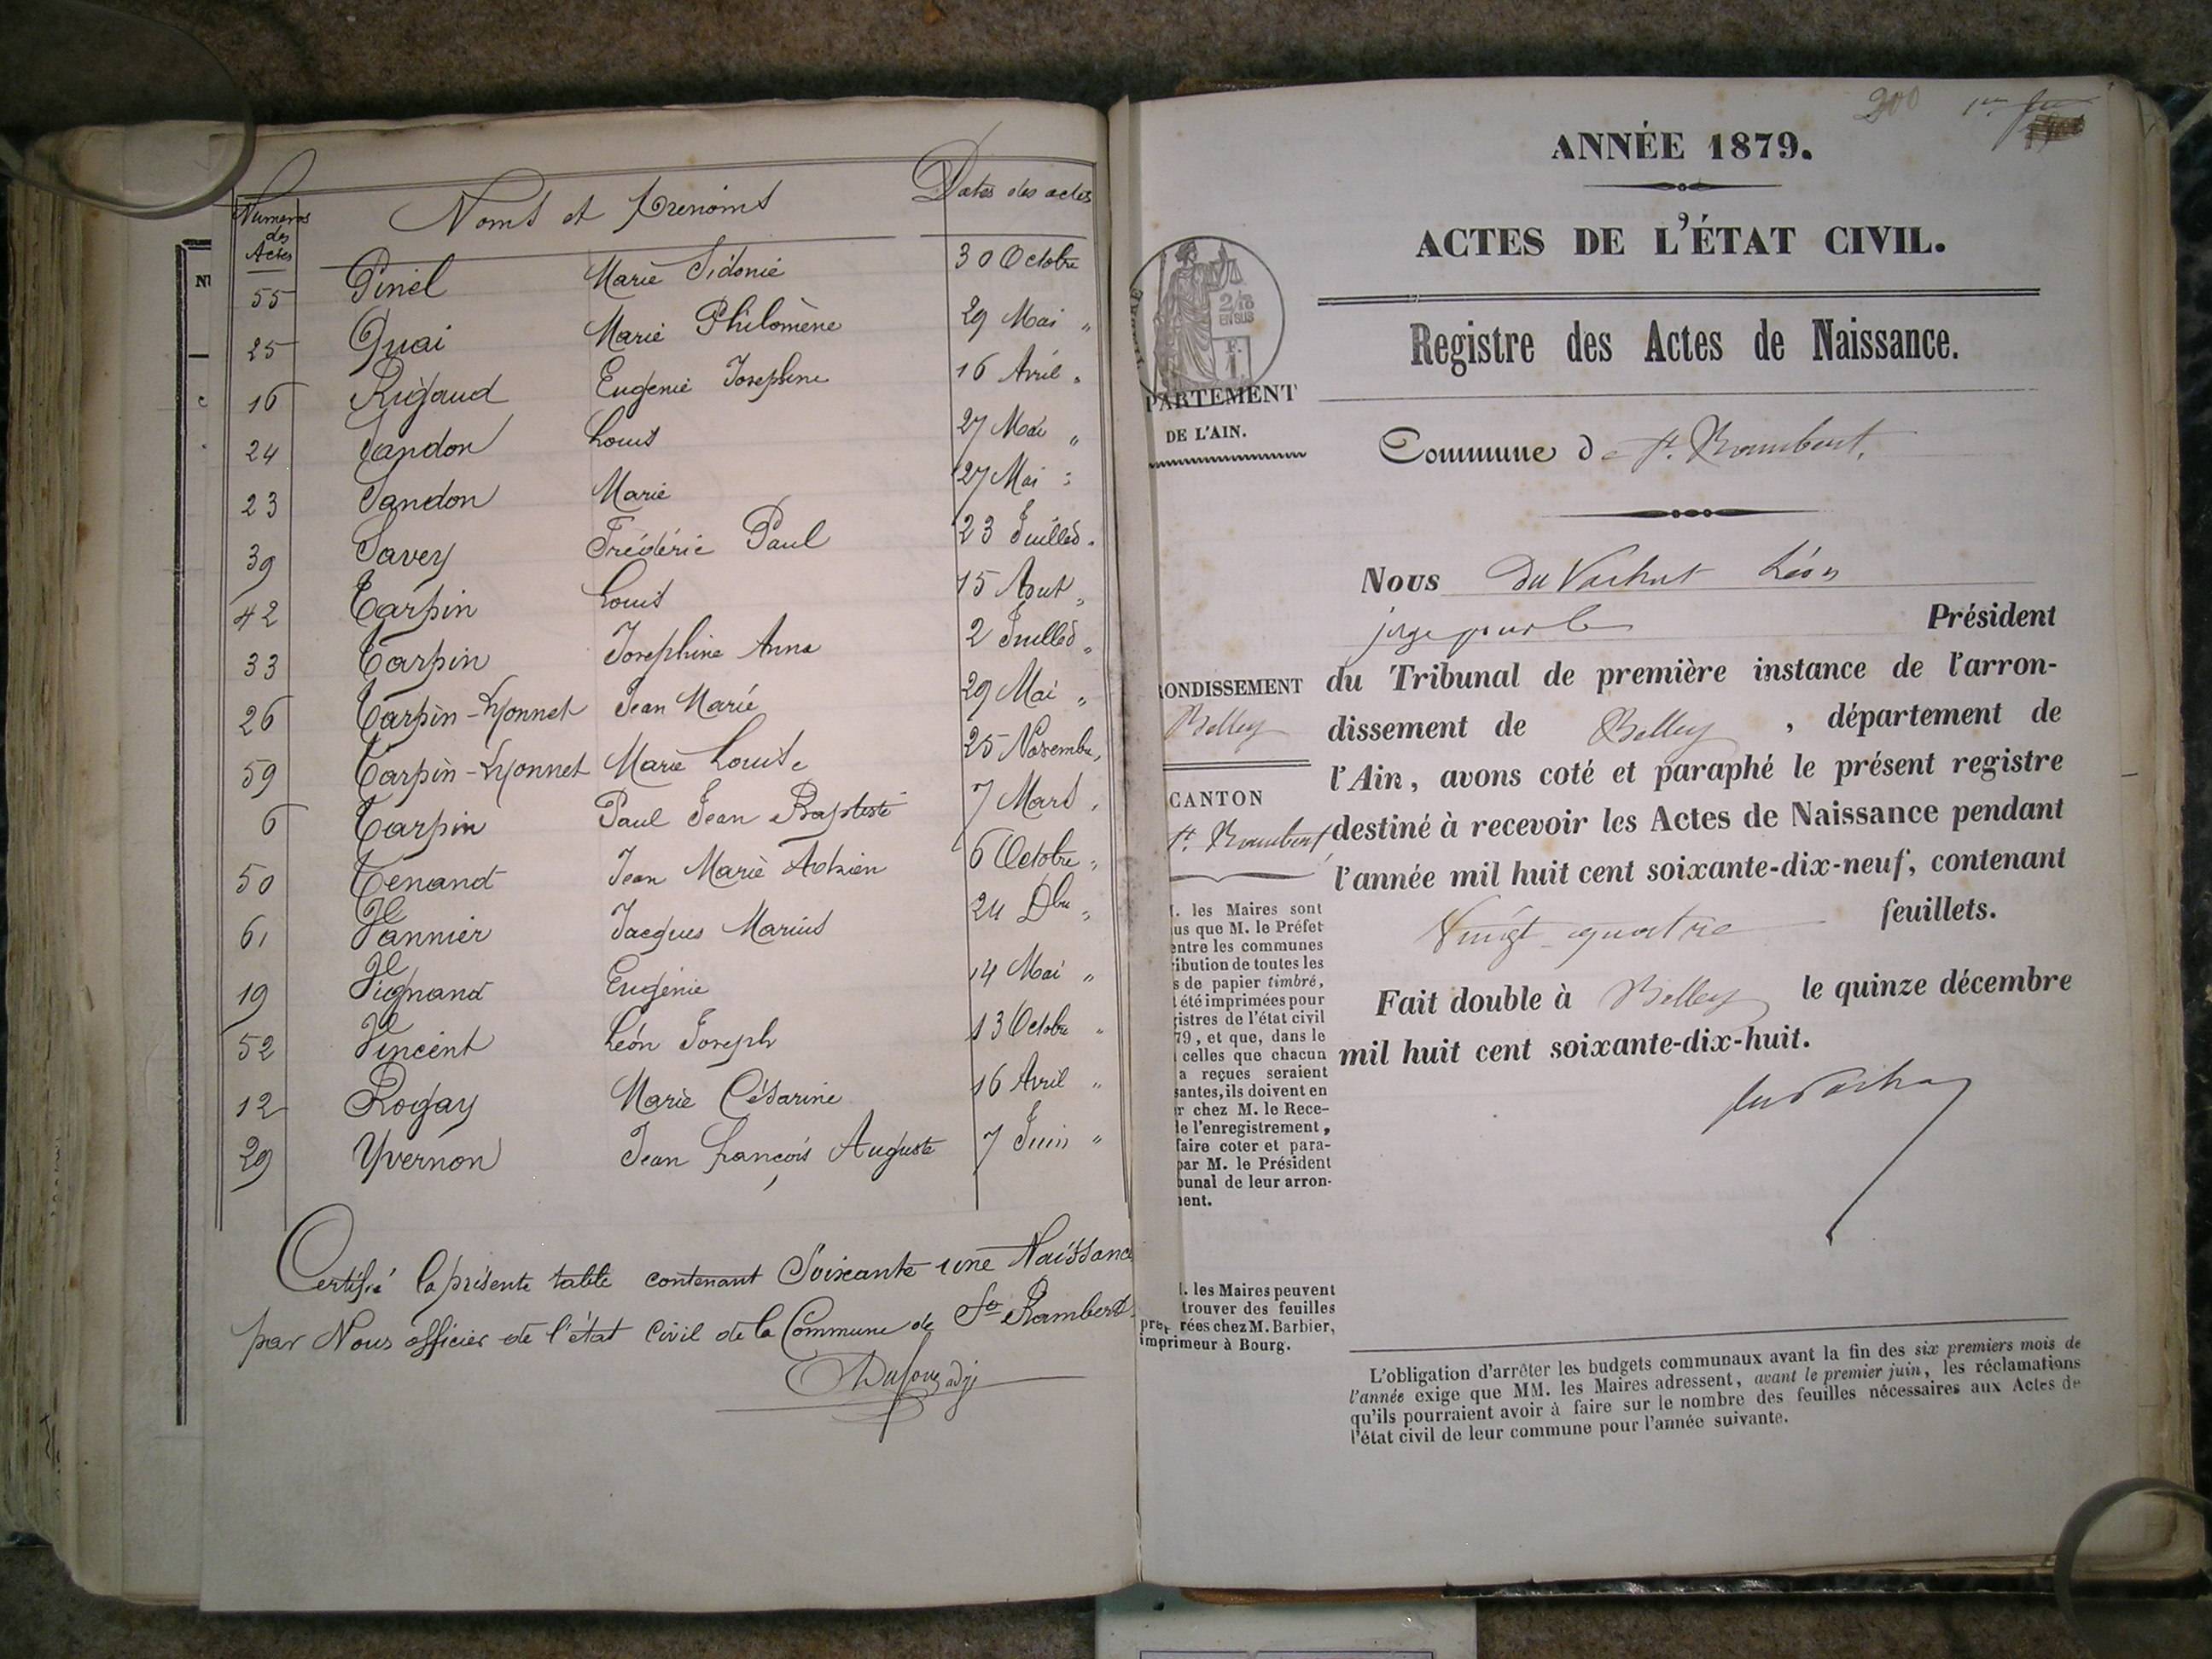 Numeros des Actes Noms et Prénoms Dates des actes
55 Pinel Marie Sidonie 30 Octobre
25 Quai Marie Philomène 29 Mai "
16 Rigaud Eugénie Josephine 16 Avril "
24 Sandon Louis 27 Mai "
23 Sandon Marie 27 Mai "
39 Savey Frédéric Paul 23 Juillet "
42 Tarpin Louis 15 Aout "
33 Tarpin Josephine Anna 2 Juillet "
26 Tarpin-Lyonnet Jean Marie 29 Mai "
59 Tarpin-Lyonnet Marie Louise 25 Novembre "
6 Tarpin Paul Jean Baptiste 7 Mars "
50 Tenand Jean Marie Adrien 6 Octobre "
61 Vannier Jacques Marius 24 Dbre "
19 Vignand Eugénie 14 Mai "
52 Vincent Léon Joseph 13 Octobre "
12 Rogay Marie Césarine 16 Avril "
29 Yvernon Jean françois Auguste 7 Juin "
Certifié la présente table contenant Soixante une Naissance
par Nous officier de l'état Civil de la Commune de St Rambert
Dufour adj
200 1er
ANNÉE 1879.
ACTES DE L'ÉTAT CIVIL.
Registre des Actes de Naissance.
2/10 EN SUS
F. 1
PARTEMENT
DE L'AIN.
Commune de St. Rambert.
Nous Du Vachat Léon
juge pour le Président
du Tribunal de première instance de l'arron-
dissement de Belley, département de
l'Ain, avons coté et paraphé le présent registre
destiné à recevoir les Actes de Naissance pendant
l'année mil huit cent soixante-dix-neuf, contenant
Vingt quatre feuillets.
Fait double à Belley le quinze décembre
mil huit cent soixante-dix-huit.
du Vachat
RONDISSEMENT
Belley
CANTON
St. Rambert
. les Maires sont
us que M. le Préfet
entre les communes
ribution de toutes les
s de papier timbré,
t été imprimées pour
gistres de l'état civil
79, et que, dans le
celles que chacun
a reçues seraient
santes, ils doivent en
r chez M. le Rece-
le l'enregistrement,
faire coter et para-
par M. le Président
bunal de leur arron-
nent.
. les Maires peuvent
trouver des feuilles
rées chez M. Barbier,
imprimeur à Bourg.
L'obligation d'arrêter les budgets communaux avant la fin des six premiers mois de
l'année exige que MM. les Maires adressent, avant le premier juin, les réclamations
qu'ils pourraient avoir à faire sur le nombre des feuilles nécessaires aux Actes de
l'état civil de leur commune pour l'année suivante.